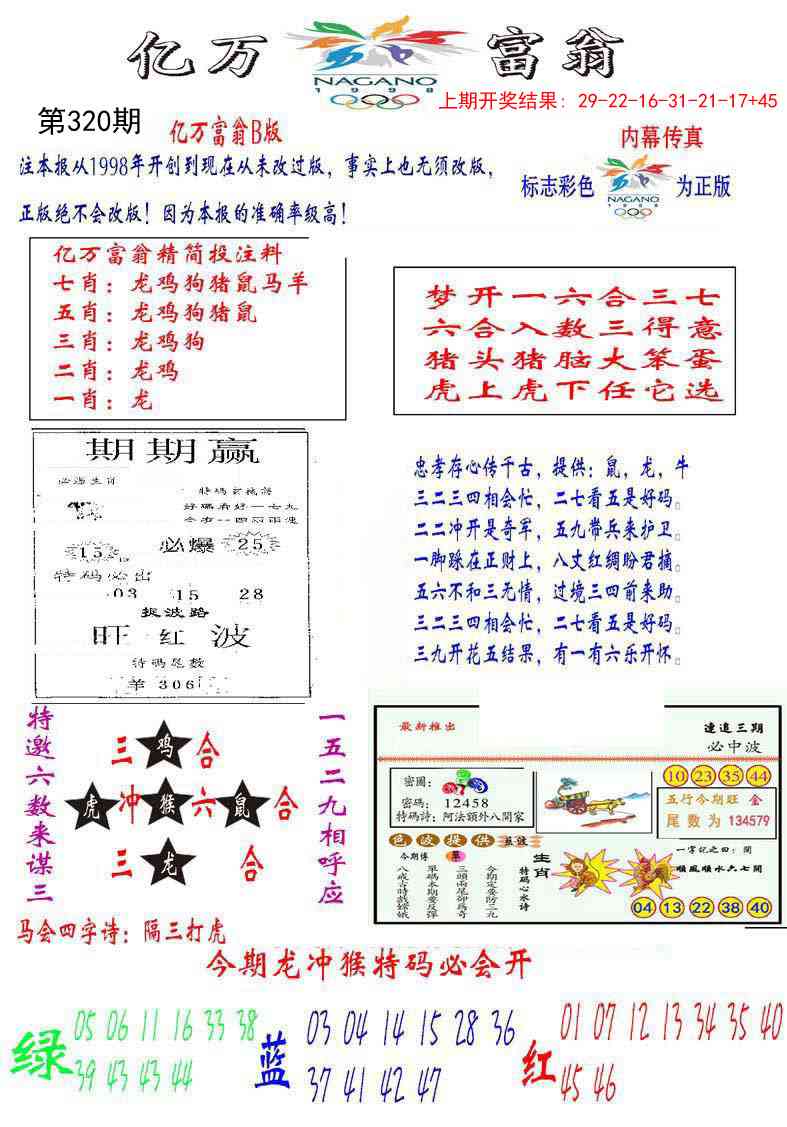 亿万富翁
NAGANO
1998
上期开奖结果：29-22-16-31-21-17+45
第320期
亿万富翁B版
内幕传真
注本报从1998年开创到现在从未改过版，事实上也无须改版，
正版绝不会改版！因为本报的准确率级高！
标志彩色
NAGANO
1998
为正版
亿万富翁精简投注料
七肖：龙鸡狗猪鼠马羊
五肖：龙鸡狗猪鼠
三肖：龙鸡狗
二肖：龙鸡
一肖：龙
梦开一六合三七
六合入数三得意
猪头猪脑大笨蛋
虎上虎下任它选
期期赢
好码看好一七九
15
必爆
25
特码必出
03 15 28
捉波路
旺红波
特码尾数
羊306
忠孝存心传千古，提供：鼠，龙，牛
三二三四相会忙，二七看五是好码。
二二冲开是奇军，五九带兵来护卫。
一脚跺在正财上，八丈红绸盼君摘。
五六不和三无情，过境三四前来助。
三二三四相会忙，二七看五是好码。
三九开花五结果，有一有六乐开怀。
特邀六数来谋三
三鸡合
虎冲猴六鼠合
三龙合
一五二九相呼应
马会四字诗：隔三打虎
最新推出
連追三期
必中波
密圖：
密碼：12458
特碼詩：阿法額外八開家
10 23 35 44
五行今期旺 金
尾数为 134579
色波提供
今期博 單
今期定要防三九
三頭兩尾卻爲奇
單碼本期要反彈
八戒古時戲嫦娥
特碼心水詩
生肖
一字記之曰：開
順風順水六七開
04 13 22 38 40
今期龙冲猴特码必会开
绿
05 06 11 16 33 38
39 43 43 44
蓝
03 04 14 15 28 36
37 41 42 47
红
01 07 12 13 34 35 40
45 46